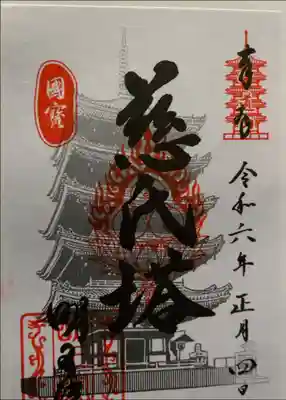 奉拝
令和六年 正月四日
慈氏塔
國寳
明王院